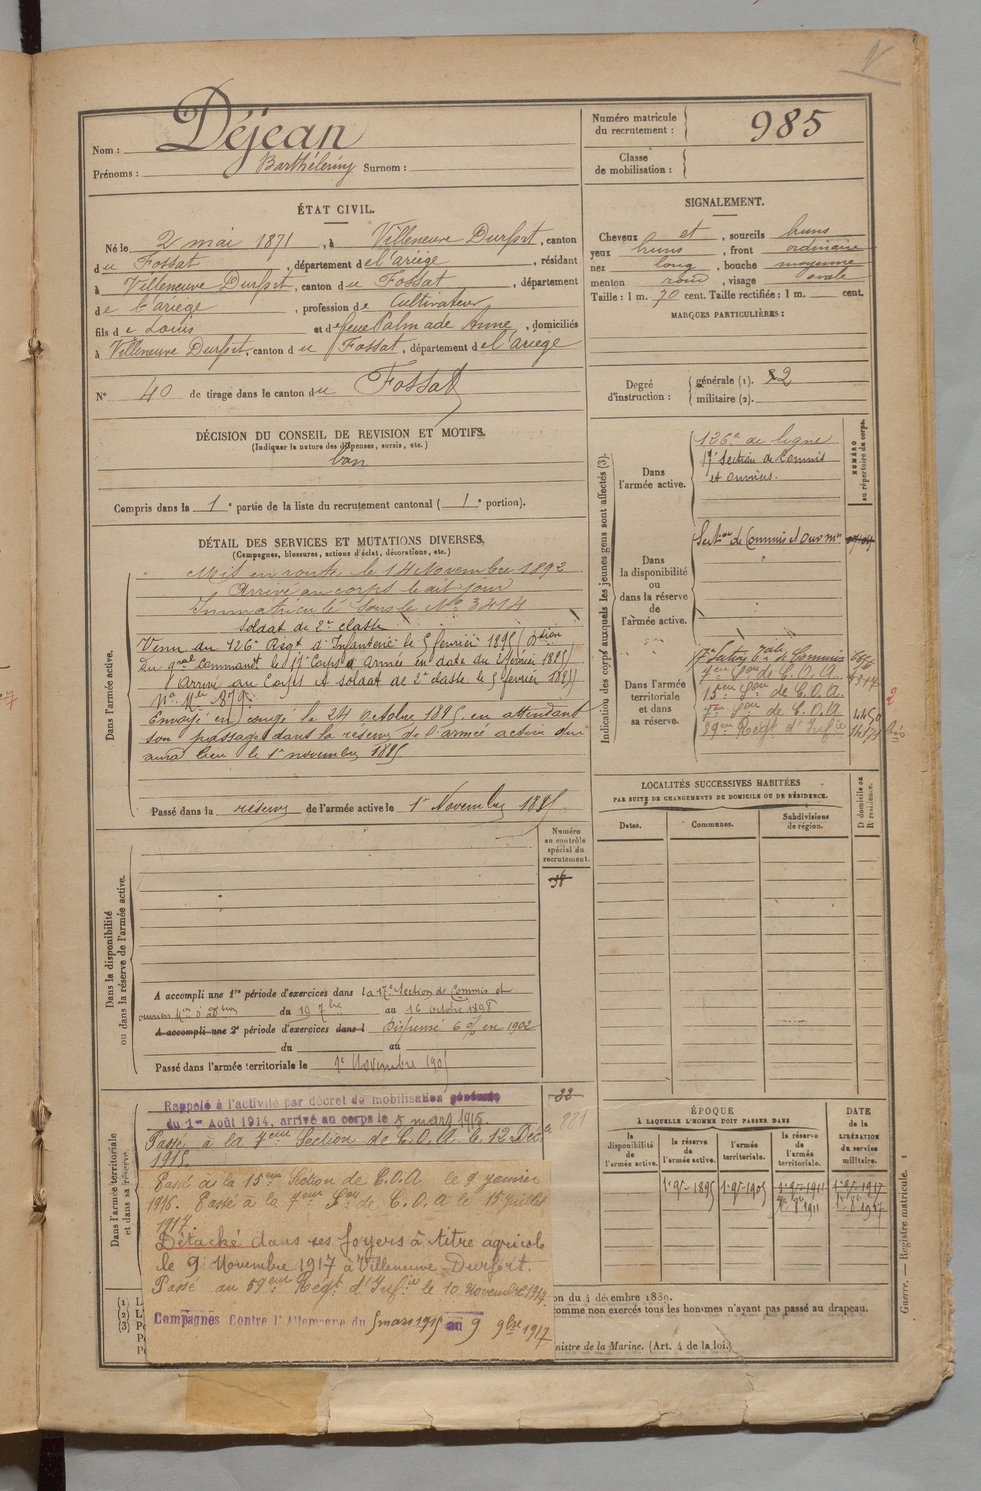 Nom : Déjean
Prénoms : Barthélemy Surnom :
Numéro matricule du recrutement : 985
Classe de mobilisation :
ÉTAT CIVIL.
Né le 2 mai 1871, à Villeneuve Durfort, canton
du Fossat, département de l'ariège, résidant
à Villeneuve Durfort, canton du Fossat, département
de l'ariège, profession de Cultivateur
fils de Louis et de feue Palmade Anne, domiciliés
à Villeneuve Durfort, canton du Fossat, département de l'ariège
N° 40 de tirage dans le canton du Fossat
SIGNALEMENT.
Cheveux et, sourcils bruns
yeux bruns, front ordinaire
nez long, bouche moyenne
menton rond, visage ovale
Taille : 1 m. 70 cent. Taille rectifiée : 1 m. cent.
MARQUES PARTICULIÈRES :
Degré d'instruction : générale (1). 2
militaire (2).
DÉCISION DU CONSEIL DE REVISION ET MOTIFS.
(Indiquer la nature des dispenses, sursis, etc.)
bon
Compris dans la 1e partie de la liste du recrutement cantonal (1e portion).
DÉTAIL DES SERVICES ET MUTATIONS DIVERSES.
(Campagnes, blessures, actions d'éclat, décorations, etc.)
Dans l'armée active.
Mis en route le 14 Novembre 1892
Arrivé au corps le dit jour
Immatriculé sous le No 3414
Soldat de 2e classe
Venu du 126e Régt d'Infanterie le 5 février 1895 (
du gral Commandt le 17e Corps d'Armée en date du 2 février 1895)
Arrivé au Corps et soldat de 2e classe le 5 février 1895
No Mle 879.
Envoyé en congé le 24 Octobre 1895, en attendant
son passage dans la réserve de l'armée active qui
aura lieu le 1er novembre 1895
Passé dans la réserve de l'armée active le 1er Novembre 1895.
Dans la disponibilité ou dans la réserve de l'armée active.
Numéro au contrôle spécial du recrutement.
A accompli une 1re période d'exercices dans la 17e Section de Commis et
ouvriers du 19 7bre au 16 octobre 1898
A accompli une 2e période d'exercices dans l Dispensé 6 % en 1902
du au
Passé dans l'armée territoriale le 1er Novembre 1905
Dans l'armée territoriale et dans sa réserve.
Rappelé à l'activité par décret de mobilisation générale
du 1er Août 1914, arrivé au corps le 5 mars 1915.
32
881
Passé à la 7eme Section de C.O.A. le 12 Déc
1915.
Passé à la 15eme Section de C.O.A le 9 janvier
1916. Passé à la 7eme Son de C.O.A le 15 juillet
1917.
Détaché dans ses foyers à titre agricole
le 9 Novembre 1917 à Villeneuve Durfort.
Passé au 59eme Régt d'Infie le 10 novembre 1917.
Campagnes Contre l'Allemagne du 5 mars 1915 au 9 9bre 1917
Indication des corps auxquels les jeunes gens sont affectés (3).
NUMÉRO au répertoire du corps.
Dans l'armée active.
126e de ligne
17e Section de Commis
et ouvriers.
Dans la disponibilité ou dans la réserve de l'armée active.
Section de Commis et Ouv
Dans l'armée territoriale et dans sa réserve.
7eme Son de C.O.A.
15eme Son de C.O.A.
7eme Son de C.O.A
59eme Régt d'Infie
LOCALITÉS SUCCESSIVES HABITÉES
PAR SUITE DE CHANGEMENTS DE DOMICILE OU DE RÉSIDENCE.
Dates.
Communes.
Subdivisions de région.
D domicile ou R résidence.
ÉPOQUE
À LAQUELLE L'HOMME DOIT PASSER DANS
la disponibilité de l'armée active.
la réserve de l'armée active.
l'armée territoriale.
la réserve de l'armée territoriale.
DATE de la LIBÉRATION du service militaire.
1er 9bre 1895
1er 9bre 1905
1er 9bre 1911
1er 9bre 1917
Guerre. — Registre matricule. 1
on du 4 décembre 1889.
comme non exercés tous les hommes n'ayant pas passé au drapeau.
nistre de la Marine. (Art. 4 de la loi.)
(1) L
(2) L
(3) P